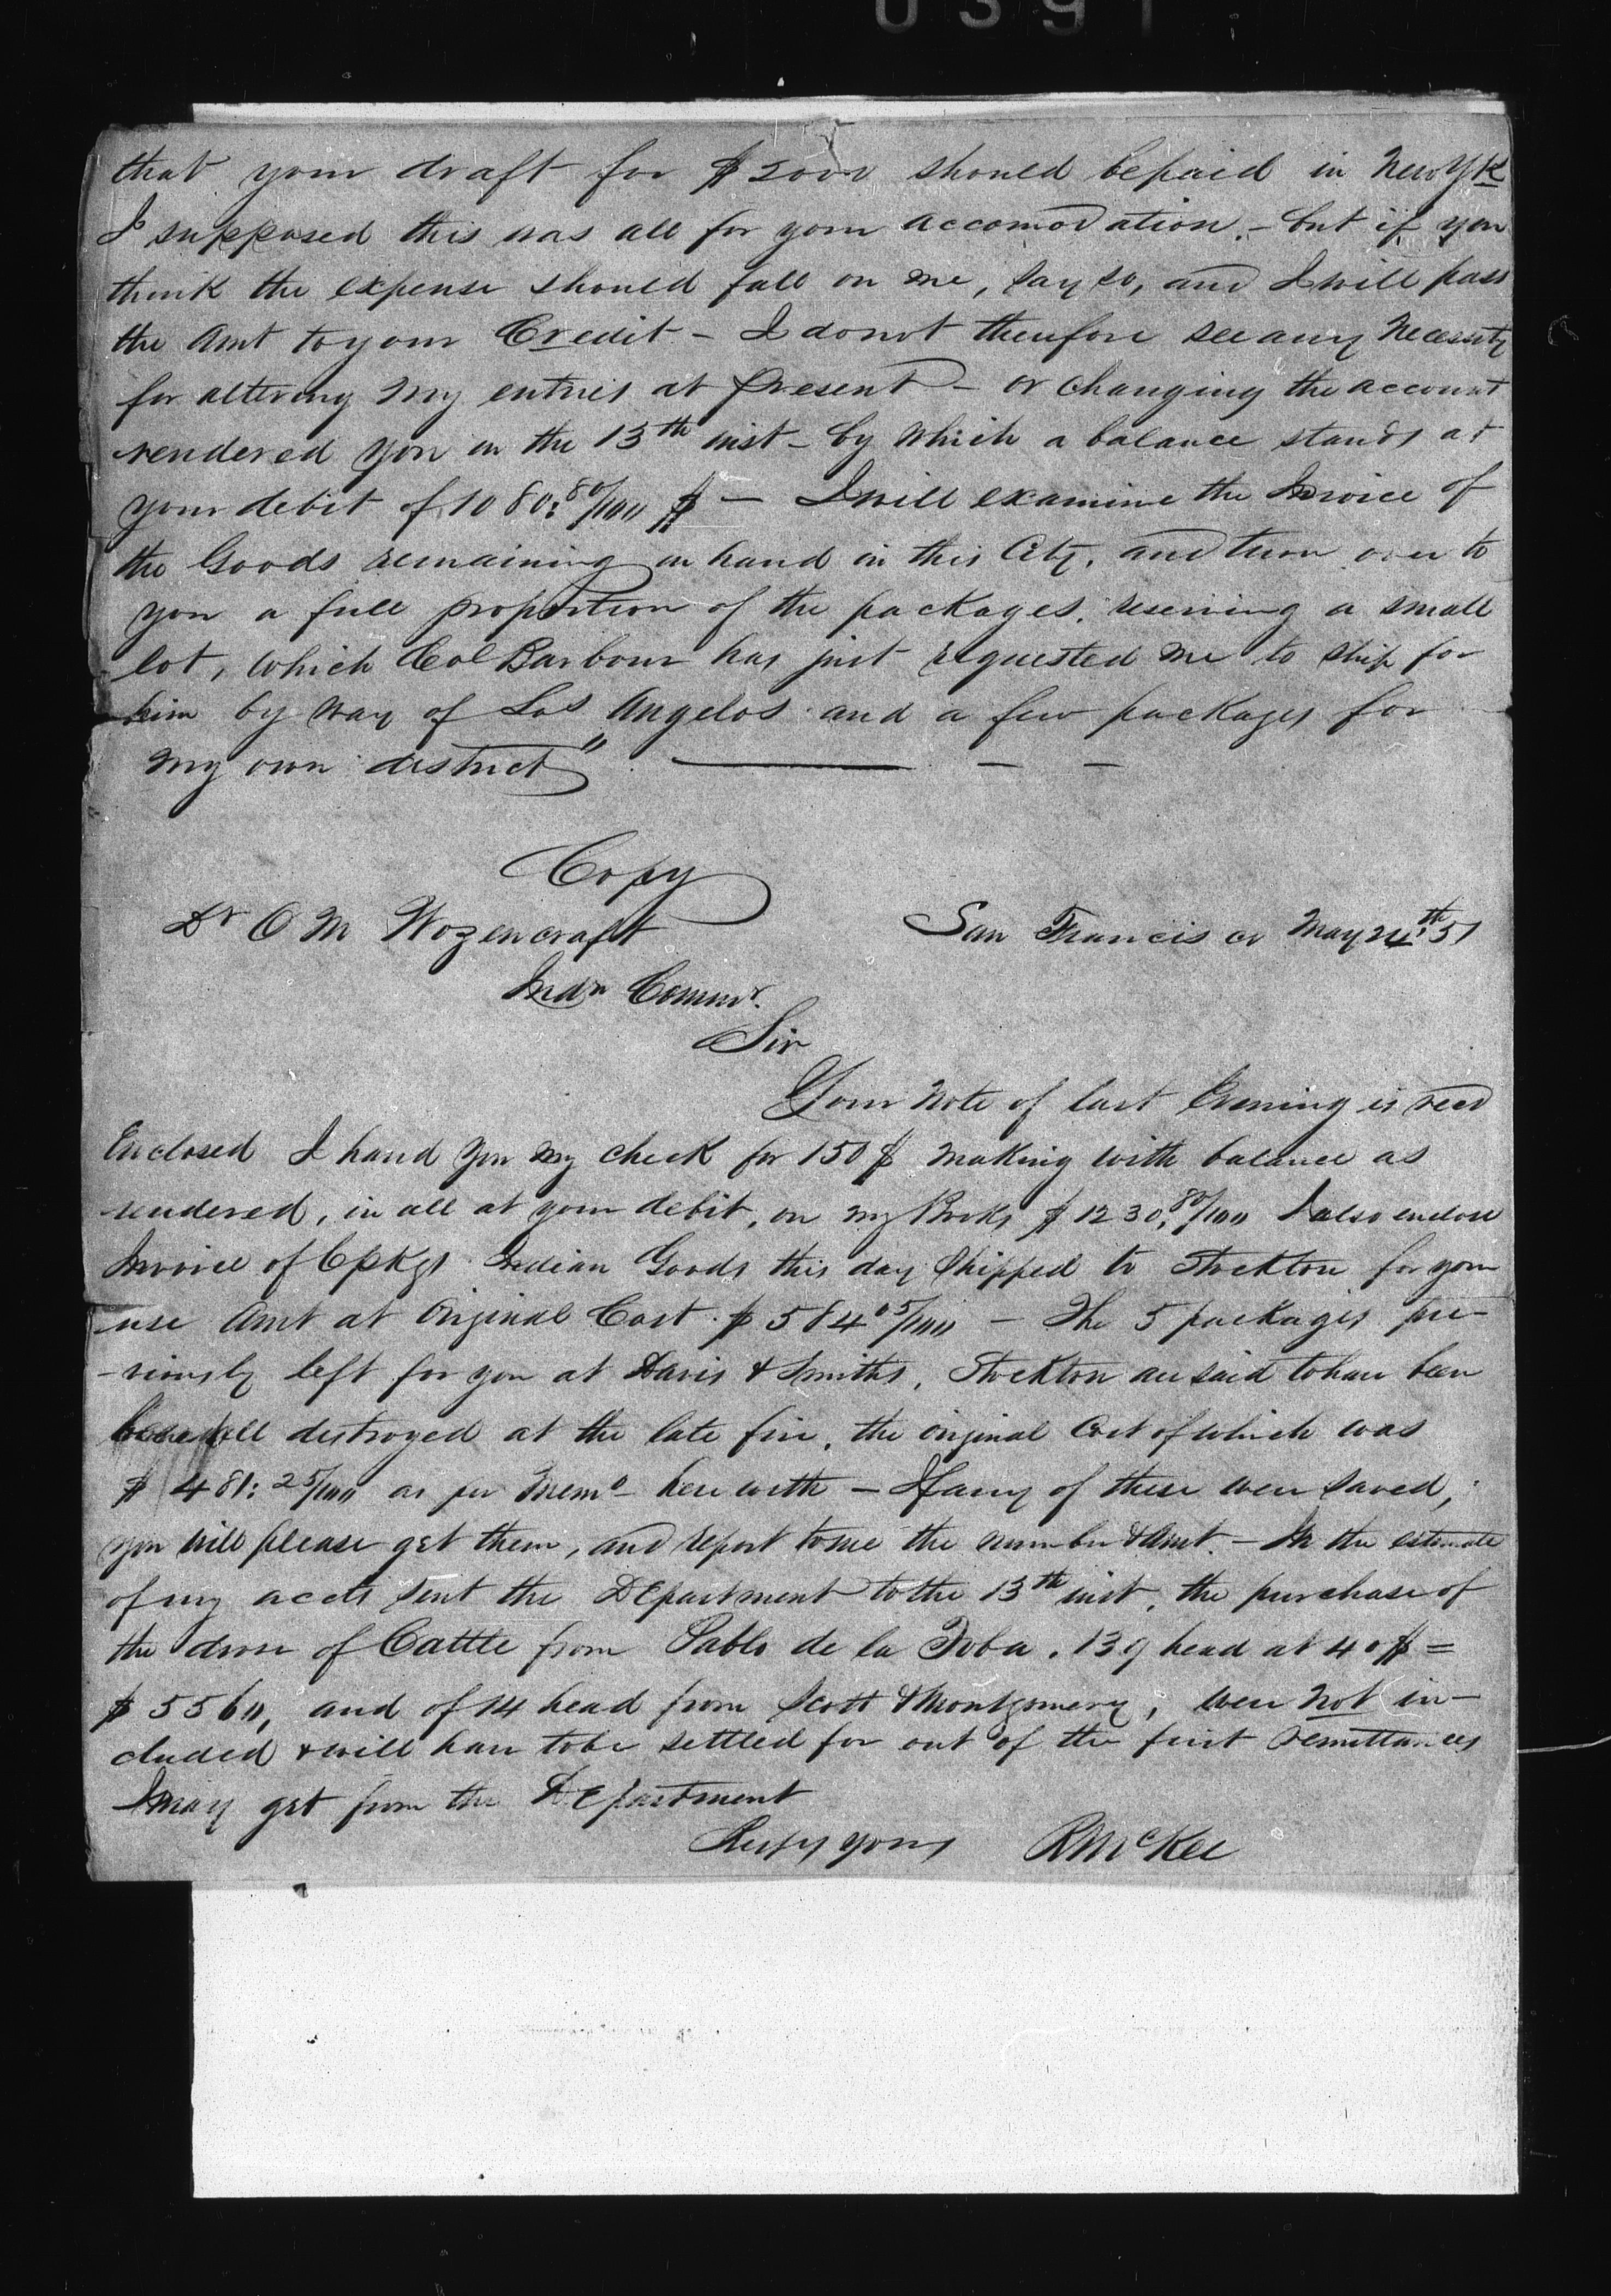 0391
that your draft for $2000 should be paid in New Yk
I supposed this was all for your accomodation. – but if you
think the expense should fall on me, say so, and I will pass
the Amt to your Credit – I do not therefore see any necessity
for altering my entries at present – or changing the account
rendered you on the 13th inst – by which a balance stands at
your debit of 1080: 80/100 $ – I will examine the Invoice of
the Goods remaining on hand in this City, and turn over to
you a full proportion of the packages, reserving a small
lot, which Col Barbour has just requested me to ship for
him by way of Los Angelos and a few packages for
my own district"
Copy
Dr O M Wozencraft San Francisco May 24th 51
Indn Commr.
Sir
Your note of last Evening is recd
Enclosed I hand you my check for 150$ making with balance as
rendered, in all at your debit, on my Books $1230, 80/100 I also enclose
Invoice of 6 pkgs Indian Goods this day shipped to Stockton for your
use Amt at Original Cost. $584 05/100 – The 5 packages pre-
-viously left for you at Davis & Smiths, Stockton are said to have been
all destroyed at the late fire, the original Cost of which was
$481: 25/100 as per Memo herewith – If any of these were saved,
you will please get them, and report to me the number & Amt. – In the estimate
of my accts sent the Department to the 13th inst, the purchase of
the drove of Cattle from Pablo de la Toba. 139 head at 40$ =
$5560, and of 14 head from Scott & Montgomery, were not in-
cluded & will have to be settled for out of the first remittances
I may get from the Department
Respy yours R McKee